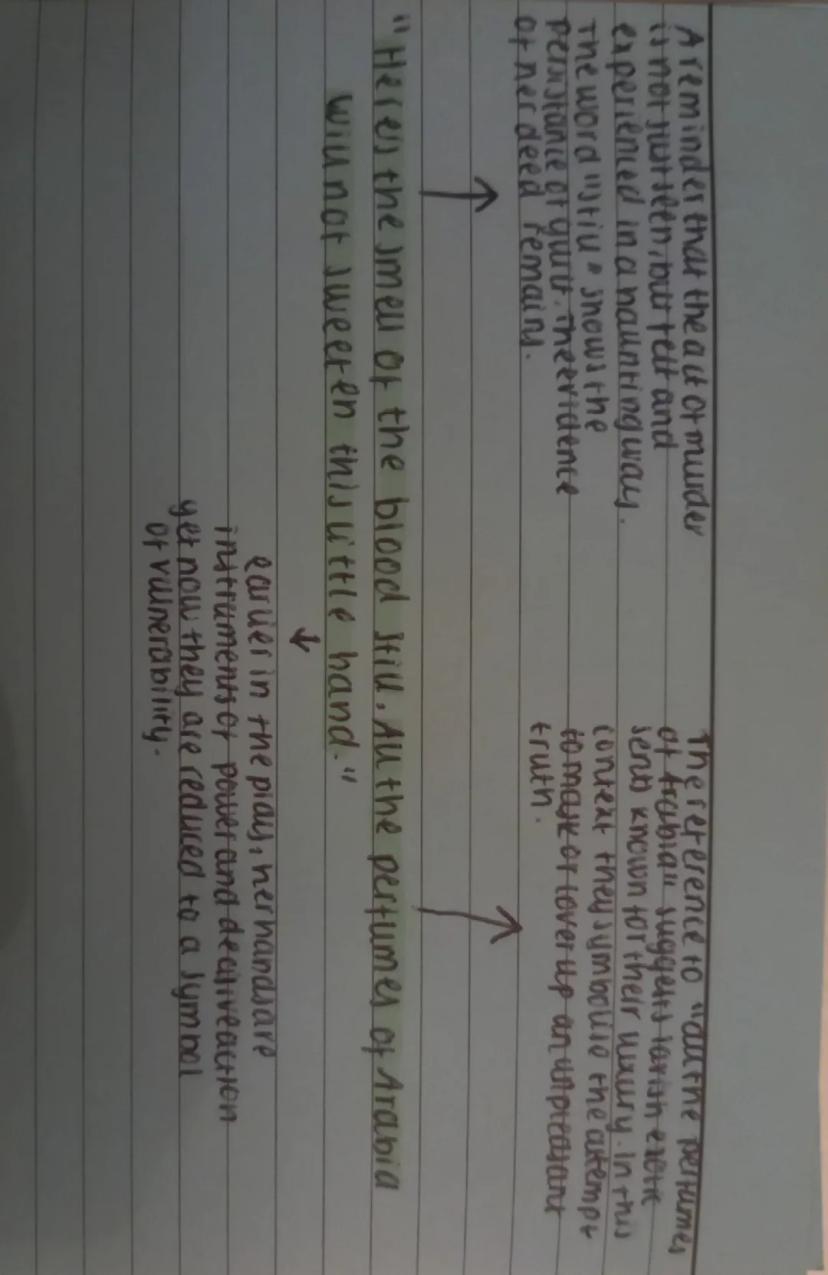 A reminder that the act of murder
is not just seen, but felt and
experienced in a haunting way.
The word "still" shows the
persistance of guilt. The evidence
of her deed remains.
The reference to "all the perfumes
of Arabia" suggests lavish exotic
sents known for their luxury. In this
context they symbolise the attempt
to mask or cover up an unpleasant
truth.
"Heres the smell of the blood still. All the perfumes of Arabia
will not sweeten this little hand."
earlier in the play, her hands are
instruments of power and decisive action
yet now they are reduced to a symbol
of vulnerability.